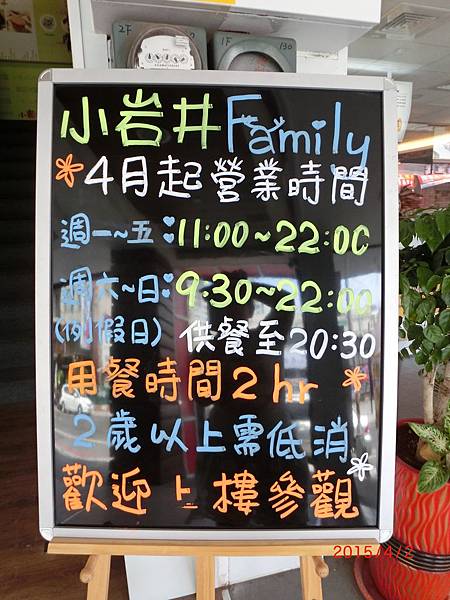 2F
1F
130
小岩井Family
4月起營業時間
週一~五:11:00~22:00
週六~日:9:30~22:00
(例假日) 供餐至20:30
用餐時間2hr
2歲以上需低消
歡迎上樓參觀
2015/4/2